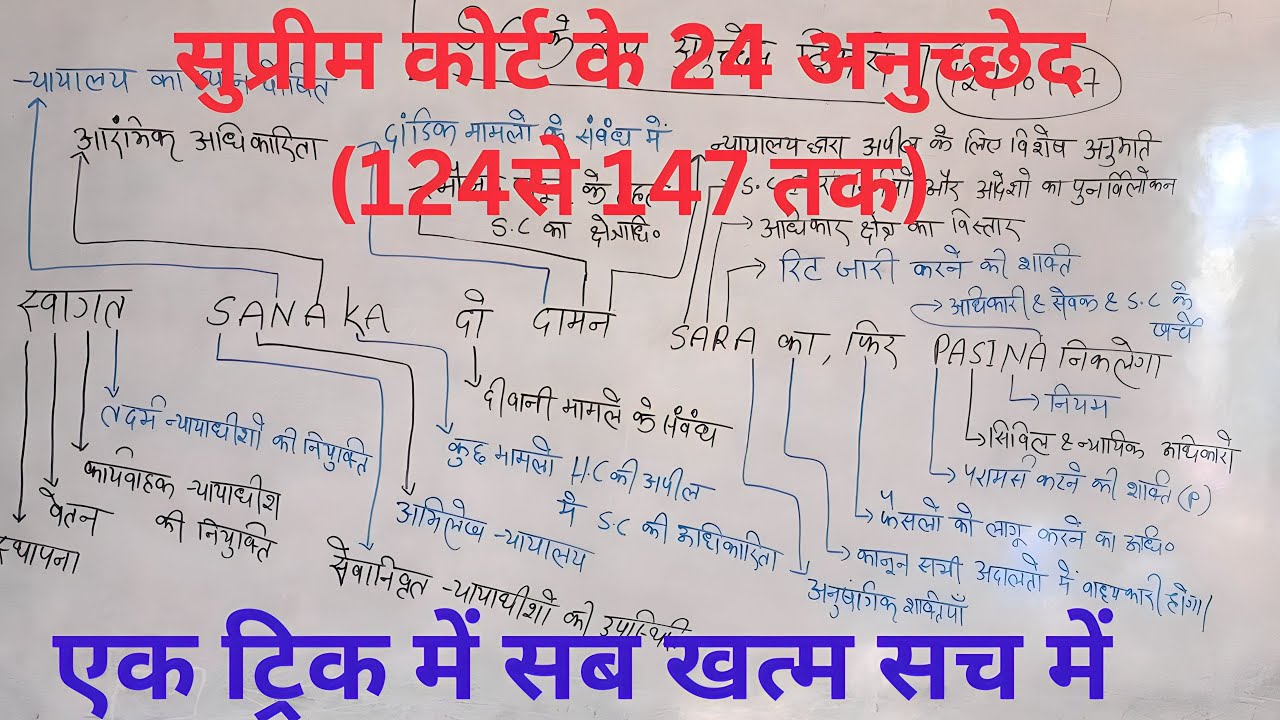 सुप्रीम कोर्ट के 24 अनुच्छेद
(124से 147 तक)
न्यायालय का
आरंभिक अधिकारिता
दांडिक मामलो के संबंध में
S.C का क्षेत्राधि०
न्यायालय द्वारा अपील के लिए विशेष अनुमति
S.C और आदेशो का पुनर्विलोकन
अधिकार क्षेत्र का विस्तार
रिट जारी करने की शक्ति
अधिकारी ८ सेवक ८ S.C के
खर्चे
स्वागत SANAKA दो दामन SARA का, फिर PASINA निकलेगा
नियम
सिविल ८ न्यायिक अधिकारी
परामर्स करने की शक्ति (P)
फैसलो को लागू करने का अधि०
कानून सभी अदालतो में बाध्यकारी होगा
अनुषांगिक शक्तियाँ
दीवानी मामले के संबंध
कुछ मामलो H.C की अपील
में S.C की अधिकारिता
अभिलेख न्यायालय
सेवानिवृत न्यायाधीशो की उपस्थिति
तदर्म न्यायाधीशो की नियुक्ति
कार्यवाहक न्यायाधीश
की नियुक्ति
वेतन
स्थापना
एक ट्रिक में सब खत्म सच में